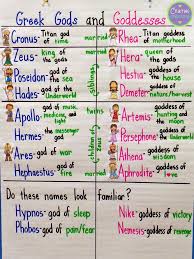 Creative
Greek Gods and Goddesses
Cronus- Titan god of time
married
Rhea- Titan goddess of motherhood
Zeus- king of the gods
married
Hera- queen of the gods
Poseidon- god of the sea
Hestia- goddess of the house
Hades- god of the Underworld
Demeter- goddess of nature/harvest
siblings
Apollo- god of music, medicine, light
twins
Artemis- goddess of hunting and the moon
Hermes- god of
Persephone- goddess of the Underworld
Ares- god of war
Athena- goddess of wisdom
Hephaestus- god of fire
married
Aphrodite- goddess of love
Do these names look familiar?
Hypnos- god of sleep
Nike- goddess of victory
Phobos- god of pain/fear
Nemesis- goddess of revenge